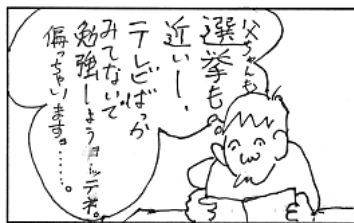 父ちゃんも
選挙も。
近いし、
テレビばっか
みてないで
勉強しょう ヨッテネ。
偏っちゃいます。……。